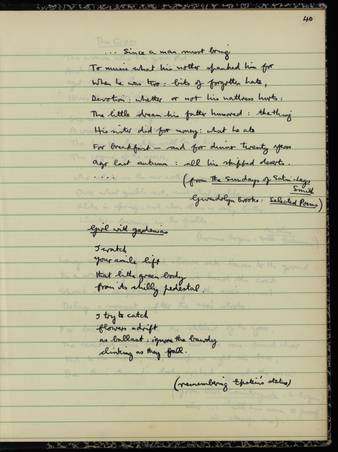 40
... Since a man must bring
To music what his mother spanked him for
When he was two: bits of forgotten hate,
Devotion: whether or not his mattress hurts:
The little dream his father humored: the thing
His sister did for money: what he ate
For breakfast – and for dinner twenty years
ago last autumn: all his skipped deserts.
....
(from The Sundays of Satin-Legs
Smith
Gwendolyn Brooks: Selected Poems)
Girl with gardenias
I watch
your smile lift
that little green body
from its chilly pedestal
I try to catch
flowers adrift
as ballast: ignore the
clinking as they fall.
(remembering Epstein's statue)